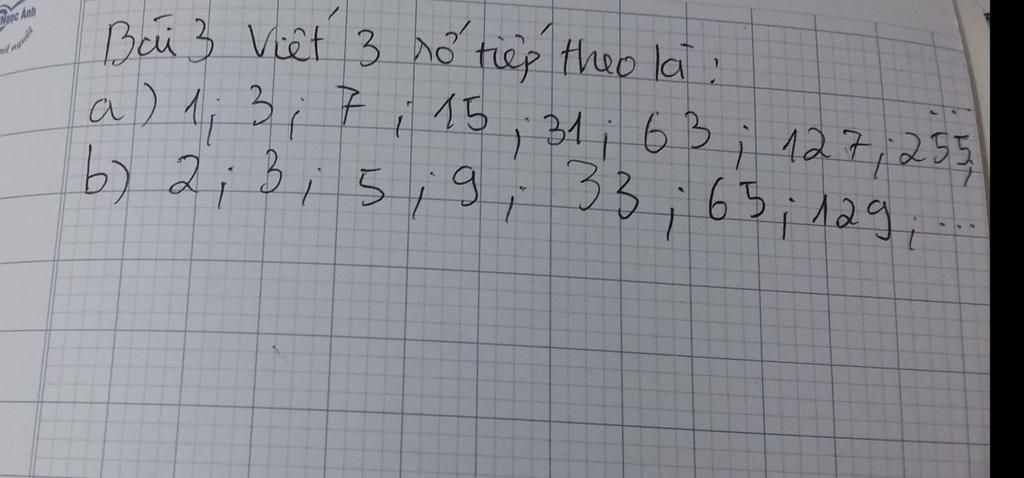 Ngọc Anh
Bài 3 Viết 3 số tiếp theo là :
a) 1; 3; 7; 15; 31; 63; 127; 255; ...
b) 2; 3; 5; 9; 33; 65; 129; ...